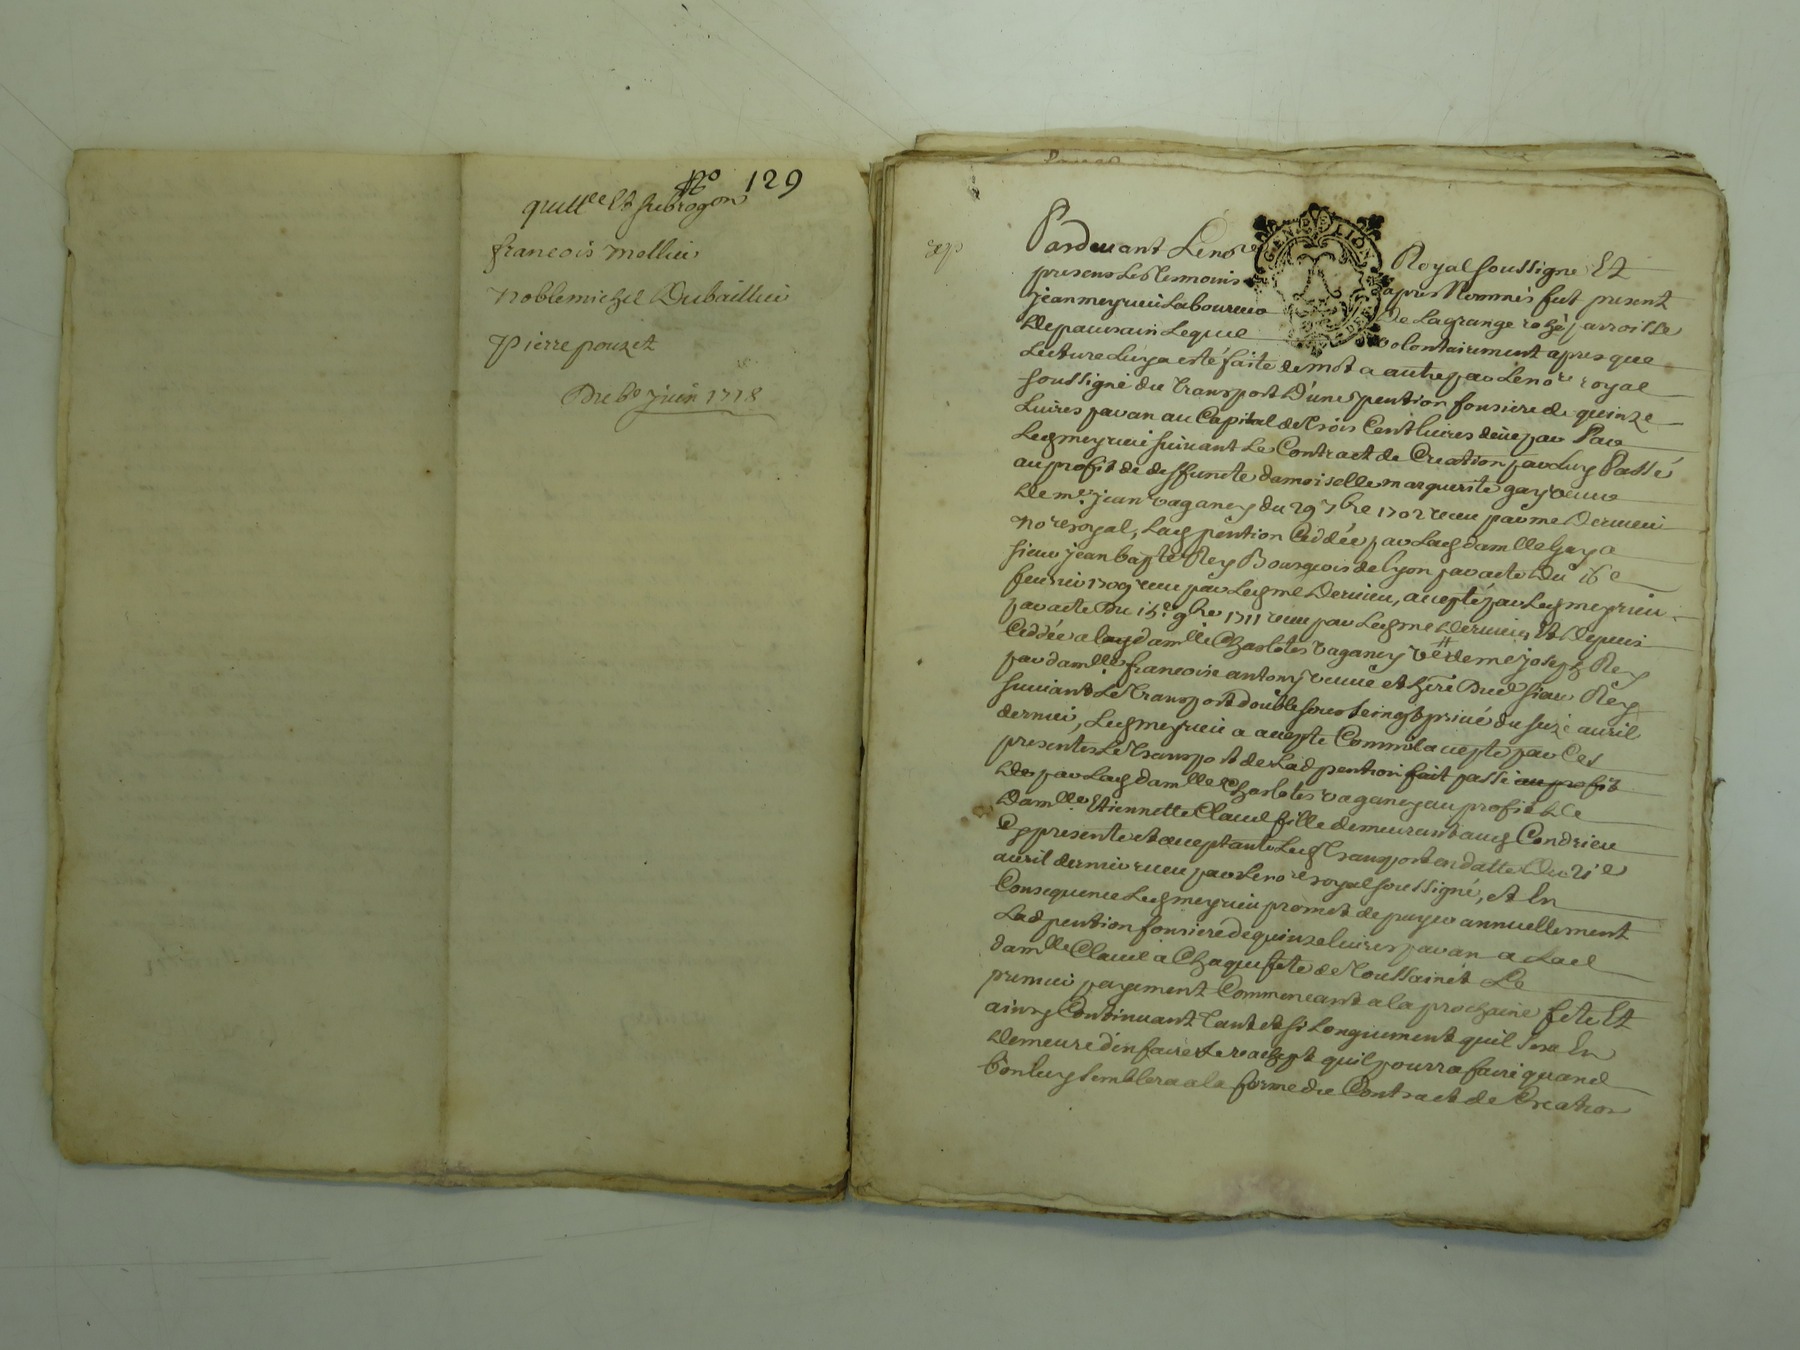 No 129
quittce Et subrogon
francois mollier
Noble michel Dubaillier
Pierre pouzet
Du 6e juin 1718
exp
GEN LION
Pardevant Le nore Royal soussigné Et
presens Les Tesmoins apres Nommés fut present
jean meyrieu Laboureur de Lagrange rozé parroisse
de paversain Lequel volontairement apres que
Lecture Luy a esté faite de mot a autre par Le nore royal
soussigné du Transport D'une pention fonsiere de quinze
Livres par an au Capital de Trois Cent livres deüe par
Led meyrieu suivant Le Contract de Création par Luy Passé
au profit de deffuncte damoiselle marguerite gay veuve
de me jean vaganey du 29 7bre 1702 receu par me Dervieu
Nore royal, Lad pention Ceddée par Lad damlle Gay a
sieur jean bapte Rey Bourgeois de lyon par acte Du 16e
fevrier 1709 receu par Led me Dervieu, accepté par Led meyrieu
par acte Du 15e 9bre 1711 receu par Led me Dervieu, Et depuis
Ceddée a lad damlle Charlotes vaganey ve de me joseph Rey
par damlle francoise antony veuve et heré Dud sieur Rey
suivant Le Transport double sous seingt privé du avril
dernier, Led meyrieu a accepté Comm'il accepte par Ces
presentes Le Transport de Lad pention fait passé au profit
de par Lad damlle Charlotes vaganey au profit de
Damlle Etiennette Clavel fille demeurant aud Condrieu
Cy presente et acceptante Led Transport en datte Du 21e
avril dernier receu par Le nore royal soussigné, et En
Consequence Led meyrieu promet de payer annuellement
Lad pention fonsiere de quinze livres par an a Lad
damlle Clavel a Chaque fete de Toussainct Le
premier payement Commencant a la prochaine fete Et
ainsy Continuant Tant et si Longuement quil sera En
demeure d'en faire Le reachept quil pourra faire quand
bon luy semblera a la forme du Contract de Creation